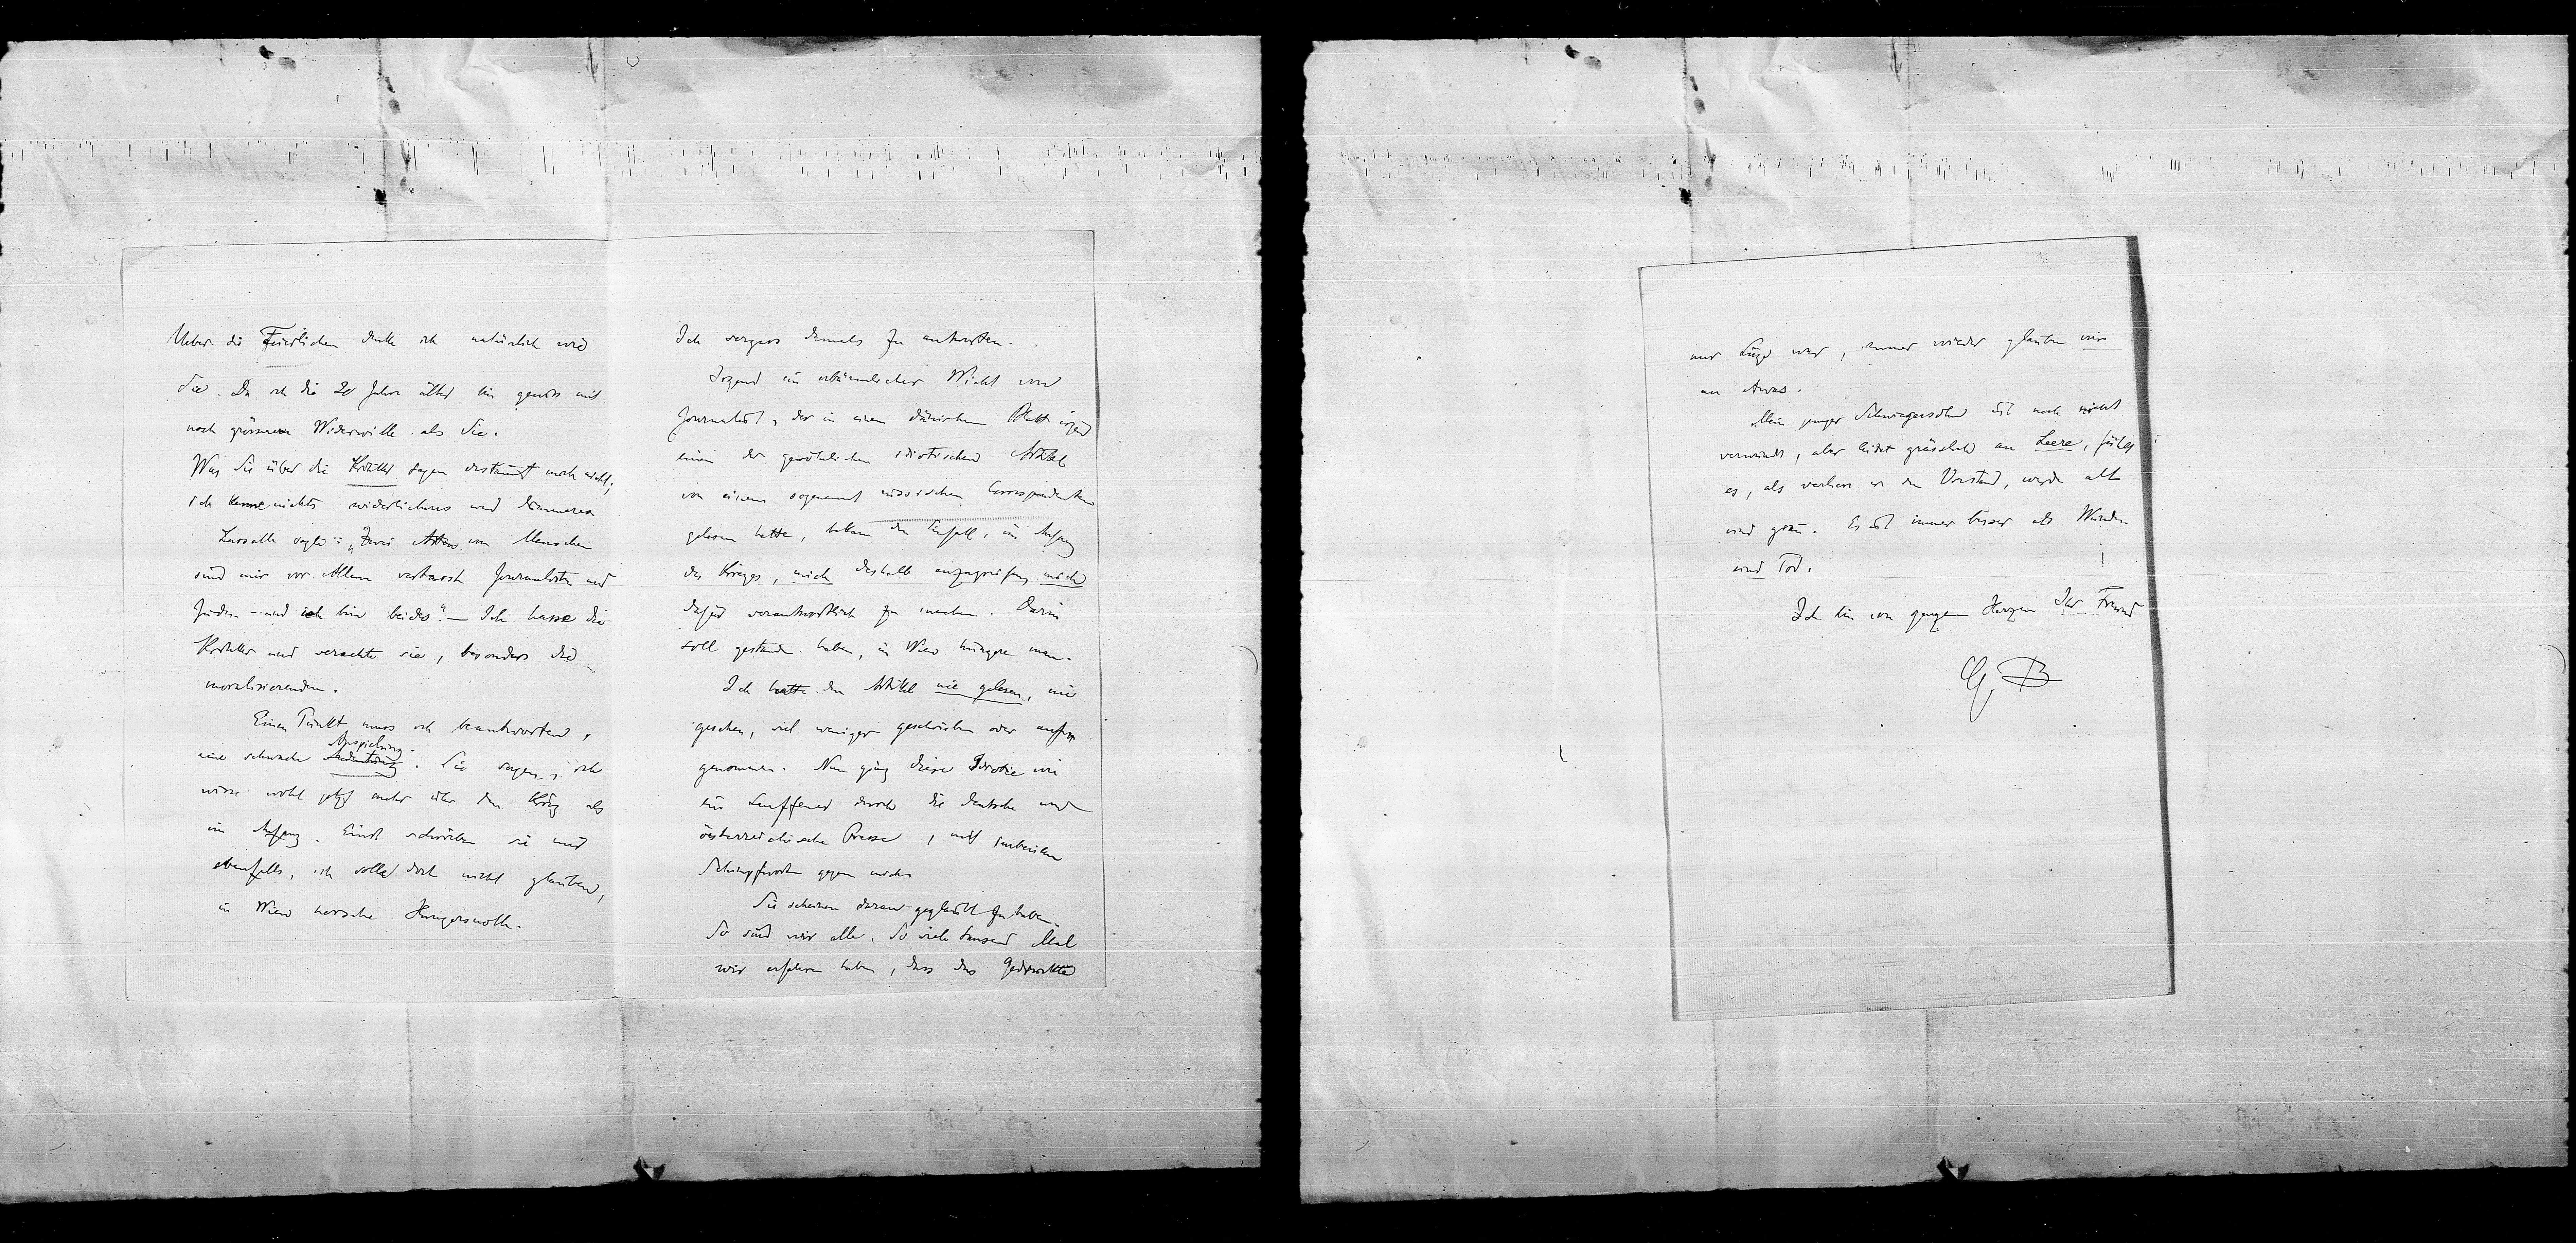 Ueber die Feierlichen denke ich natürlich wie
Sie. Da ich die 20 Jahre älter bin gewiss mit
noch grösserem Widerwille als Sie.
Was Sie über die Kritiker sagen erstaunt mich nicht;
ich kenne nichts widerlicheres und dümmeres
Lassalle sagte: „Zwei Arten von Menschen
sind mir vor Allem verhasst Journalisten und
Juden – und ich bin beides". – Ich hasse die
Kritiker und verachte sie, besonders die
moralisierenden.
Einen Punkt muss ich beantworten,
Anspielung.
eine schwache Andeutung. Sie sagen, ich
wisse wohl jetzt mehr über den Krieg als
im Anfang. Einst schrieben sie mir
ebenfalls, ich solle doch nicht glauben,
in Wien hersche Hungersnoth.
Ich vergass damals zu antworten.
Irgend ein erbärmlicher Wicht von
Journalist, der in einem dänischen Blatt irgend
einen der gewöhnlichen idiotischen Artikel
von einem sogenannt russischen Correspondenten
gelesen hatte, bekam den Einfall, im Anfang
des Krieges, mich deshalb anzugreifen, mich
dafür verantwortlich zu machen. Darin
soll gestanden haben, in Wien hungere man.
Ich hatte den Artikel nie gelesen, nie
gesehen, viel weniger geschrieben oder auf
genommen. Nun ging diese Idiotie wie
ein Lauffeuer durch die deutsche und
österreichische Presse, mit
Schimpfworten gegen mich.
Sie scheinen daran geglaubt zu haben.
So sind wir alle. So viele tausend Mal
wir erfahren haben, dass das Gedruckte
nur Lüge war, immer wieder glauben wir
an Etwas.
Mein junger Schwiegersohn ist noch nicht
verwundet, aber leidet grässlich an Leere, fühlt
es, als verliere er den Verstand, werde alt
und grau. Es ist immer besser als Wunden
und Tod.
Ich bin von ganzem Herzen Ihr Freund
G. B